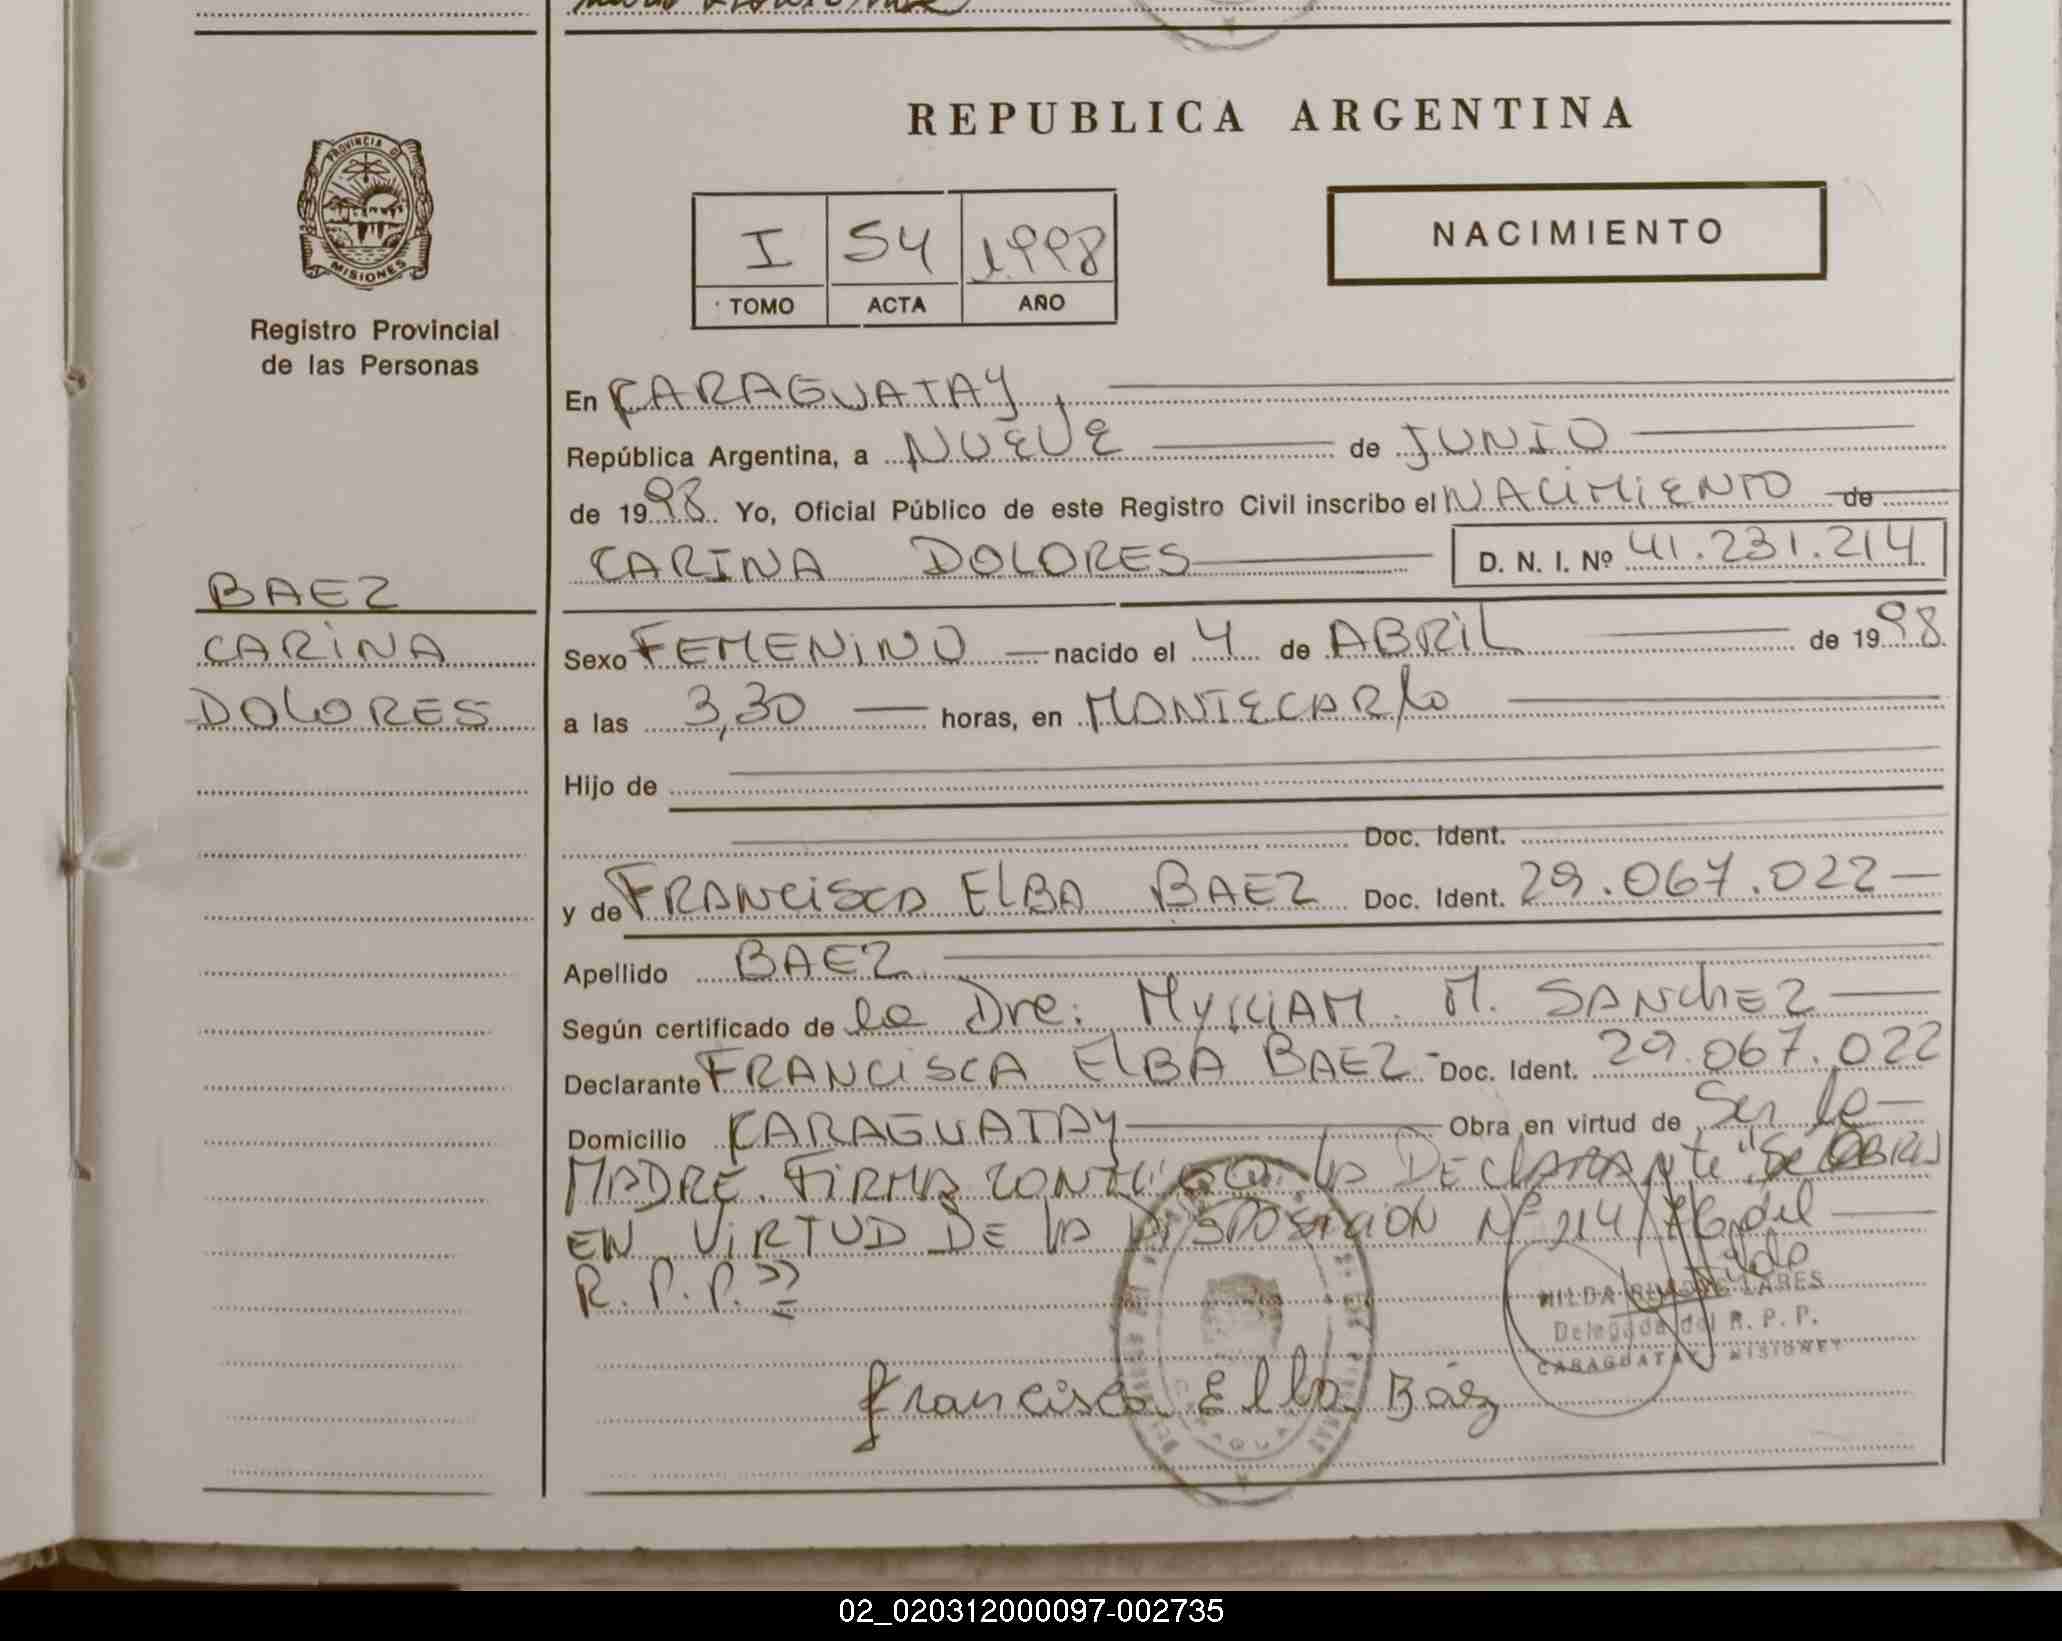 REPUBLICA ARGENTINA
PROVINCIA DE
MISIONES
Registro Provincial
de las Personas
I 54 1998
TOMO ACTA AÑO
NACIMIENTO
En CARAGUATAY,
República Argentina, a NUEVE de JUNIO
de 1998 Yo, Oficial Público de este Registro Civil inscribo el NACIMIENTO de
CARINA DOLORES D. N. I. Nº 41.231.214
BAEZ
CARINA
DOLORES
Sexo FEMENINO nacido el 4 de ABRIL de 1998
a las 3,30 horas, en MONTECARlo
Hijo de
Doc. Ident.
y de FRANCISCA ELBA BAEZ Doc. Ident. 29.067.022
Apellido BAEZ
Según certificado de la Dra: MyRiAM M. SANchEZ
Declarante FRANCISCA ELBA BAEZ Doc. Ident. 29.067.022
Domicilio CARAGUATAY Obra en virtud de Ser la
MADRE. FIRMA CONMIGO LA DEClARANte "Se OBRA
EN VIRTUD DE LA DISPOSICION Nº 214/ del
R.P.P."
HILDA LARES
Delegada del R. P. P.
CARAGUATAY MISIONES
francisca Elba Báez
02_020312000097-002735